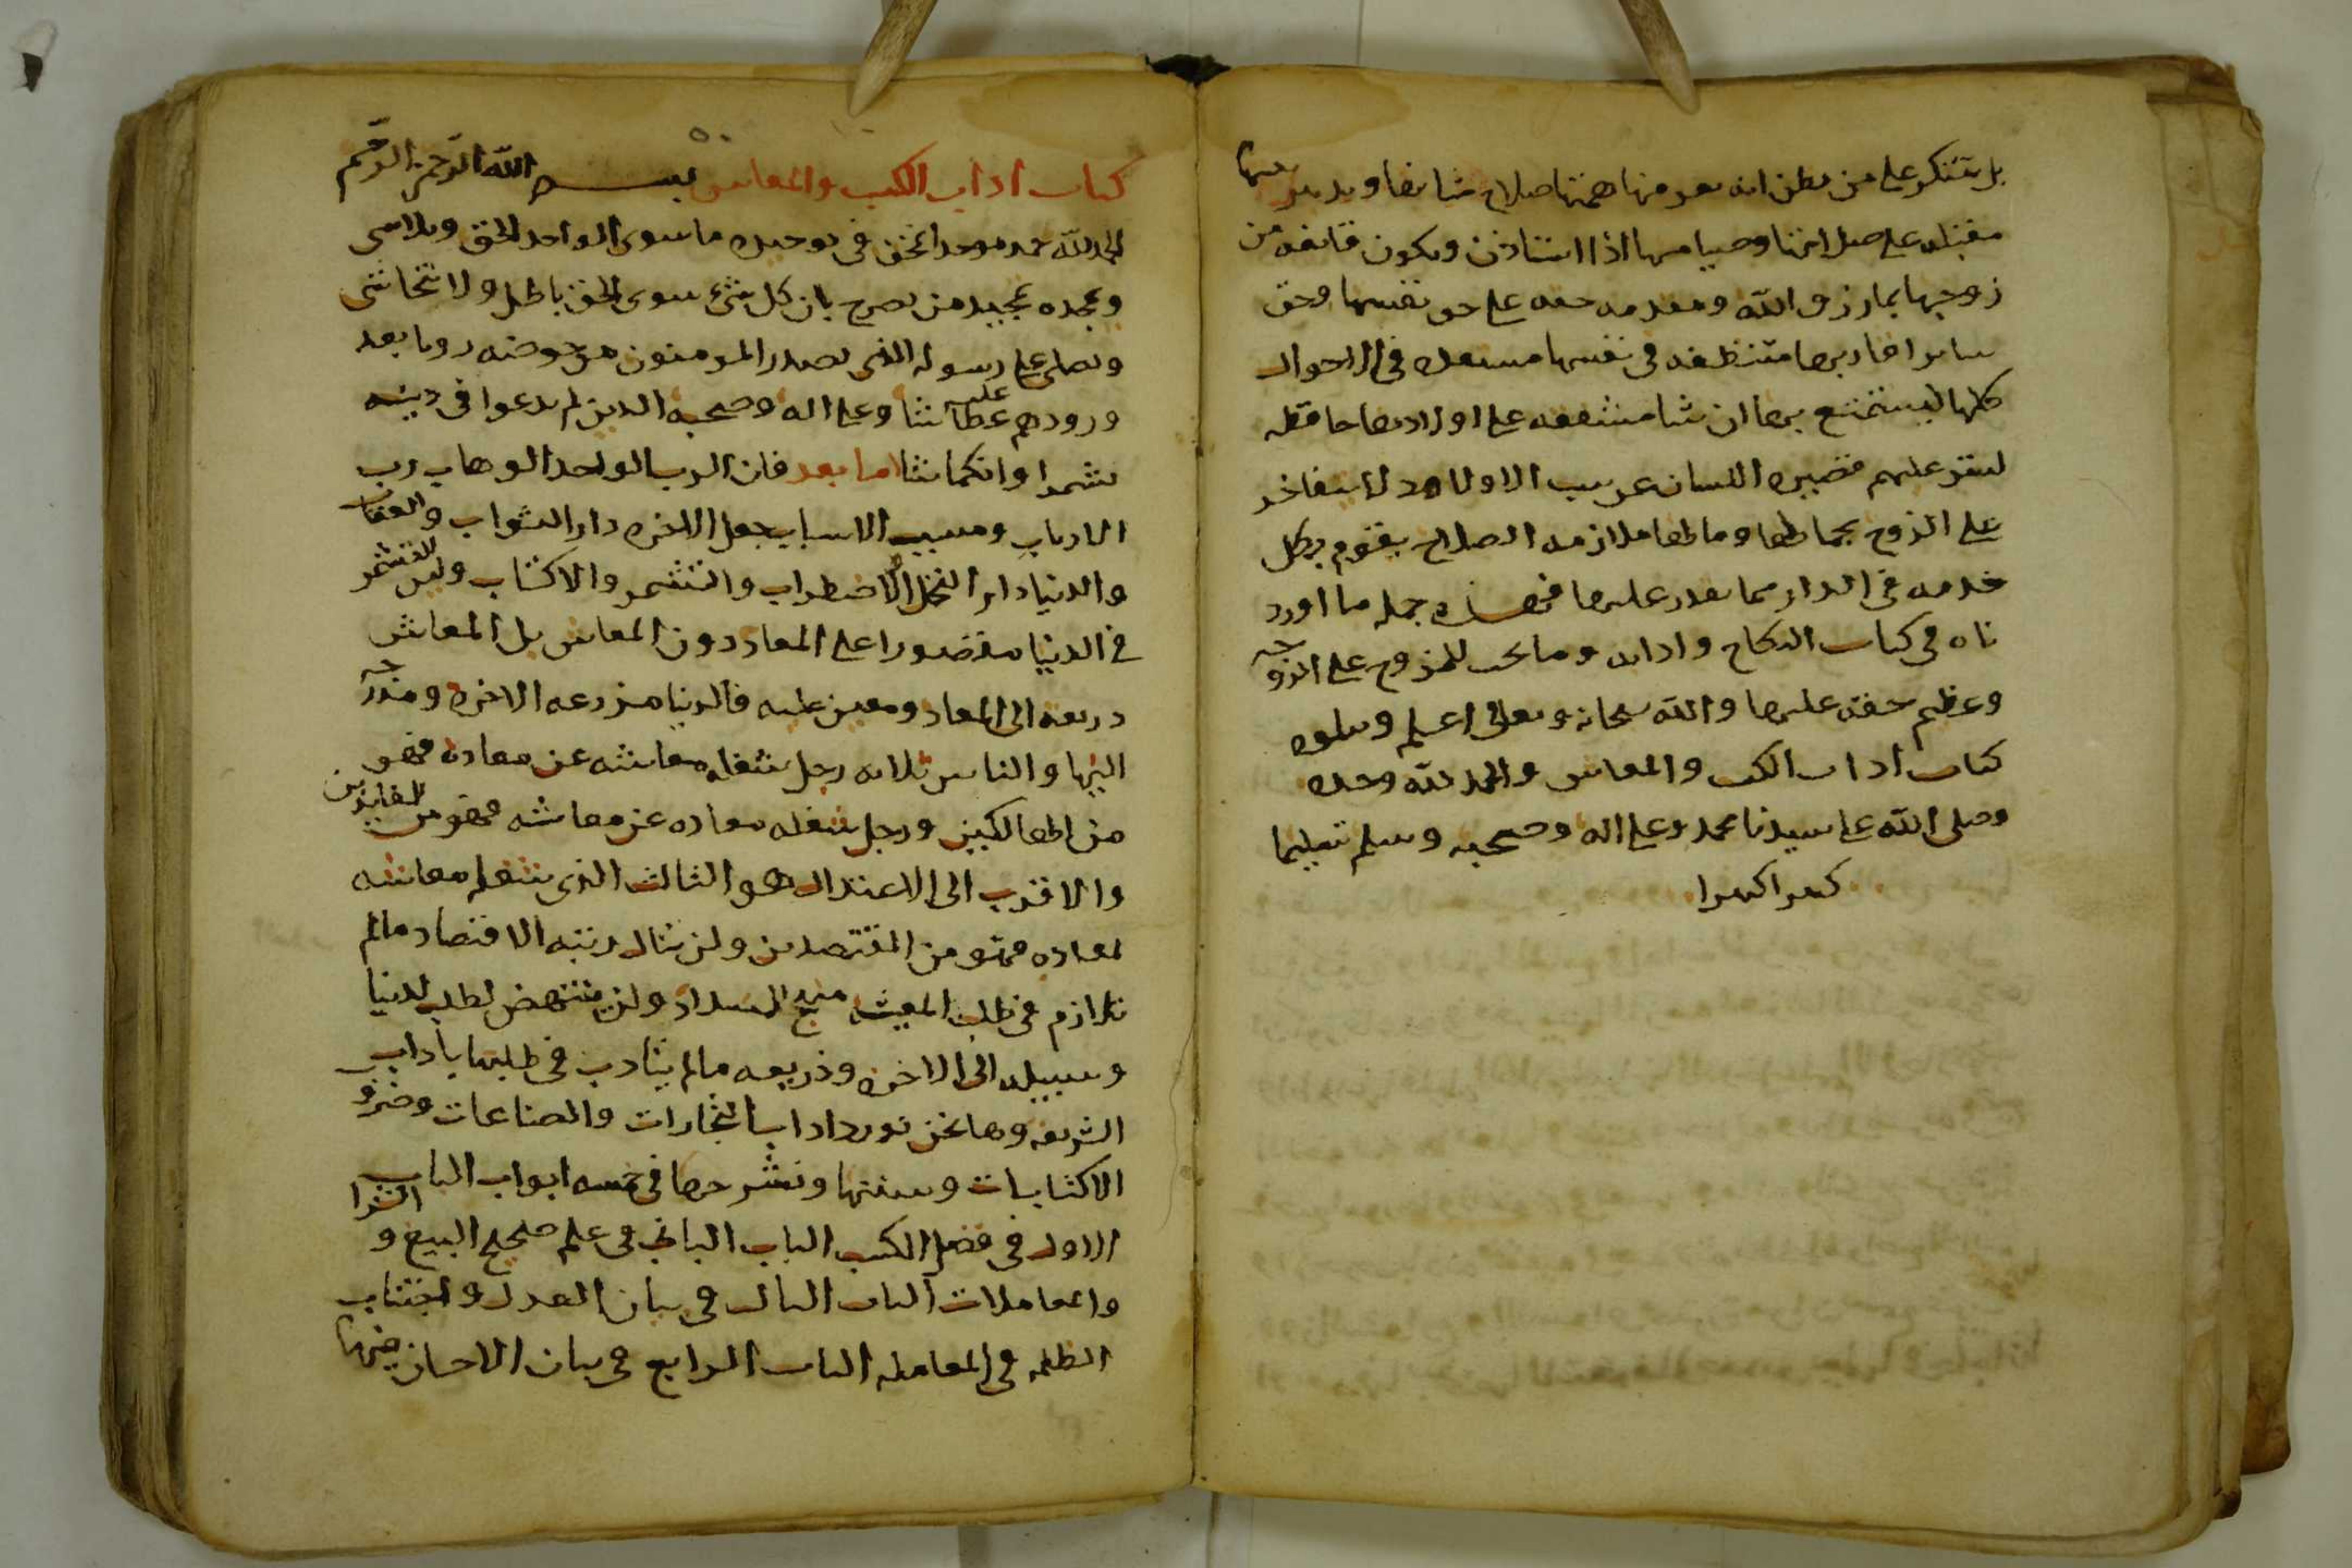 بل تتنكر على من تظن انه يعرفها همتها صلاح شانها وتدبير بيتها
مقبلة على صلاتها وصيامها اذا استاذن وتكون قانعه من
زوجها بما رزق الله ومقدمه حقه على حق نفسها وحق
ساير اقاربها متنظفه في نفسها مستعده في الاحوال
كلها ليستمتع بها ان شا مشفقه على اولادها حافظه
للستر عليهم قصيره اللسان عن سب الاولاد ولا تتفاخر
على الزوج بجمالها ومالها ملازمه الصلاح بقوم بكل
خدمه في الدار مما تقدر عليها فهذه جمله ما اورد
ناه في كتاب النكاح وادابه وما يجب للزوج على الزوجه
وعظيم حقه عليها والله سبحانه وتعالى اعلم ويتلوه
كتاب اداب الكسب والمعاش والحمد لله وحده
وصلى الله على سيدنا محمد وعلى اله وصحبه وسلم تسليما
كثيرا كثيرا
كتاب اداب الكسب والمعاش بسم الله الرحمن الرحيم
الحمد لله حمد موحد انمحق في توحيده ما سوى الواحد الحق وتلاشى
ونمجده تمجيد من يصرح بان كل شيء سوى الحق باطل ولا يتحاشى
ونصلى على رسوله الذي يصدر المومنون عن حوضه روبا بعد
ورودهم عليه عطاشا وعلى اله وصحبه الذين لم يدعوا في دينه
تشمرا وانكماشا اما بعد فان الرب الواحد الوهاب رب
الارباب ومسبب الاسباب جعل الاخره دار الثواب والعقاب
والدنيا دار التحمل والاضطراب والتشمر والاكتساب وليس التشمر
في الدنيا مقصورا على المعاد دون المعاش بل المعاش
ذريعه الى المعاد ومعين عليه فالدنيا مزرعه الاخره ومدرجه
اليها والناس ثلاثه رجل شغله معاشه عن معاده فهو
من الهالكين ورجل شغله معاده عن معاشه فهو من الفايزين
والاقرب الى الاعتدال هو الثالث الذي شغله معاشه
لمعاده فهو من المقتصدين ولن ينال رتبه الاقتصاد مالم
يلازم في طلب المعيشه منهج السداد ولن ينتهض لطلب لدنيا
وسيله الى الاخره وذريعه مالم يتادب في طلبها باداب
الشريعه وها نحن نورد اداب التجارات والصناعات وضرو
الاكتسابات وسننها ونشرحها في خمسه ابواب الباب
الاول في فضل الكسب الباب الثاني في علم صحيح البيع والشرا
والمعاملات الباب الثالث في بيان العدل واجتناب
الظلم في المعامله الباب الرابع في بيان الاحسان فيها